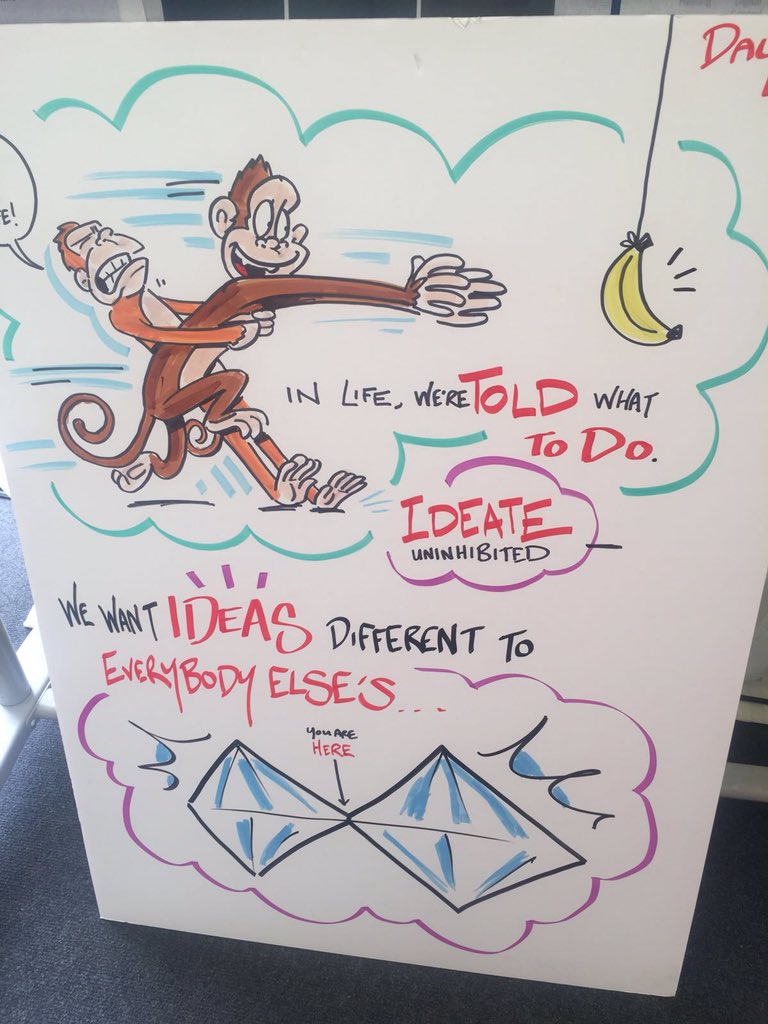 IN LIFE, WE'RE TOLD WHAT
TO DO.
IDEATE
UNINHIBITED
WE WANT IDEAS DIFFERENT TO
EVERYBODY ELSE'S...
YOU ARE
HERE